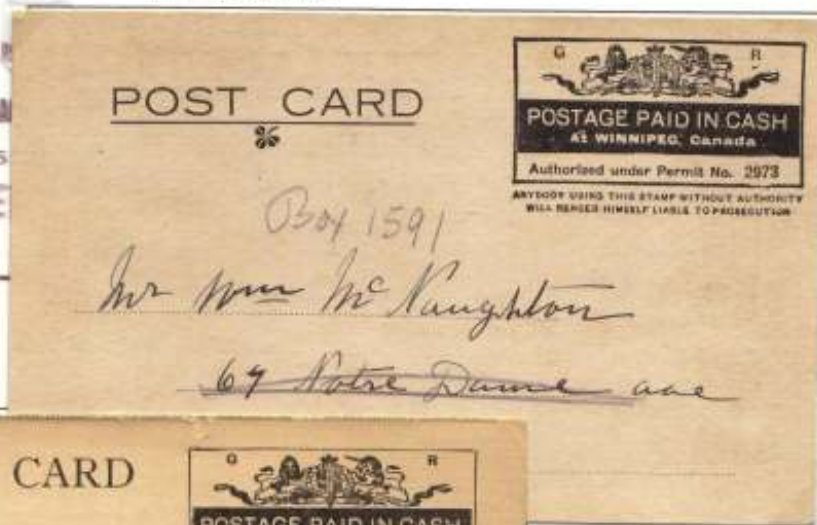 G R
POST CARD
POSTAGE PAID IN CASH
At WINNIPEG, Canada
Authorized under Permit No. 2973
ANYBODY USING THIS STAMP WITHOUT AUTHORITY
WILL RENDER HIMSELF LIABLE TO PROSECUTION
Box 1591
Mr Wm McNaughton
67 Notre Dame ave
CARD
G R
POSTAGE PAID IN CASH